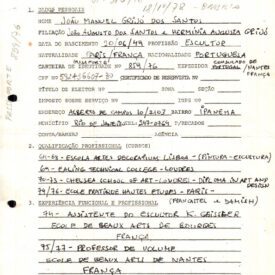 1. DADOS PESSOAIS
NOME JOÃO MANUEL GRIJÓ DOS SANTOS
FILIAÇÃO JOÃO AUGUSTO DOS SANTOS E HERMÍNIA AUGUSTA GRIJÓ
DATA DO NASCIMENTO 20/06/49 PROFISSÃO ESCULTOR
NATURALIDADE PARIS/FRANÇA NACIONALIDADE PORTUGUESA
CARTEIRA DE IDENTIDADE 859/76 EXPEDIDA CONSULADO DE PORTUGAL/NANTES FRANÇA
CPF CERTIFICADO DE RESERVISTA Nº
TÍTULO DE ELEITOR Nº ZONA SEÇÃO
IMPOSTO SOBRE SERVIÇO Nº INPS Nº
ENDEREÇO ALBERTO DE CAMPOS 10/2103 BAIRRO IPANEMA
MUNICÍPIO RIO DE JANEIRO
CONTA/BANERJ AGÊNCIA
2. QUALIFICAÇÃO PROFISSIONAL (CURSOS)
ESCOLA ARTES DECORATIVAS LISBOA - (PINTURA - ESCULTURA)
EALING TECHNICAL COLLEGE - LONDRES
CHELSEA SCHOOL OF ART - LONDRES - DIPLOMA IN ART AND DESIGN
74/76 - ECOLE PRATIQUE HAUTES ETUDES - PARIS -
3. EXPERIÊNCIA FUNCIONAL E PROFISSIONAL (FRANCASTEL E DAMISCH)
74 - ASSISTENTE DO ESCULTOR K. GEISSLER
ECOLE DE BEAUX ARTS DE BOURGES
FRANÇA
75/77 - PROFESSOR DE VOLUME
ECOLE DE BEAUX ARTS DE NANTES
FRANÇA